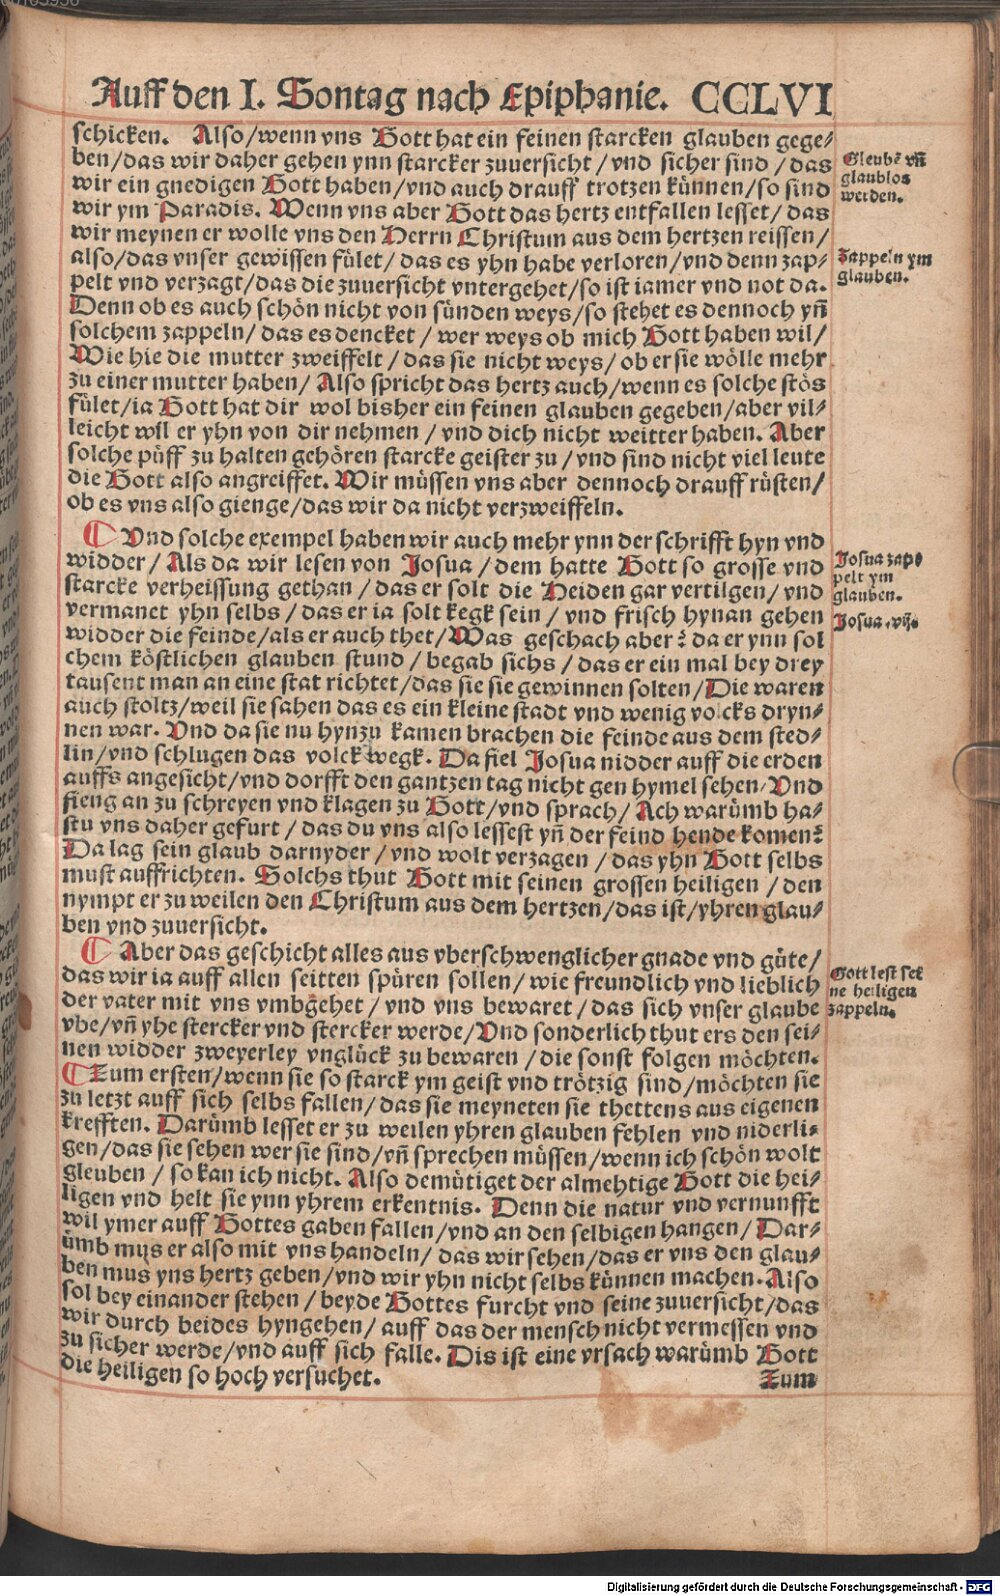 Auff den I. Sontag nach Epiphanie. CCLVI
schicken. Also/wenn vns Gott hat ein feinen starcken glauben gege⸗
ben/das wir daher gehen ynn starcker zuuersicht/vnd sicher sind/das
wir ein gnedigen Gott haben/vnd auch drauff trotzen künnen/so sind
wir ym Paradis. Wenn vns aber Gott das hertz entfallen lesset/das
wir meynen er wolle vns den Herrn Christum aus dem hertzen reissen/
also/das vnser gewissen fület/das es yhn habe verloren/vnd denn zap⸗
pelt vnd verzagt/das die zuuersicht vntergehet/so ist iamer vnd not da.
Denn ob es auch schön nicht von sünden weys/so stehet es dennoch yñ
solchem zappeln/das es dencket/wer weys ob mich Gott haben wil/
Wie hie die mutter zweiffelt/das sie nicht weys/ob er sie wölle mehr
zu einer mutter haben/Also spricht das hertz auch/wenn es solche stös
fület/ia Gott hat dir wol bisher ein feinen glauben gegeben/aber vil⸗
leicht wil er yhn von dir nehmen/vnd dich nicht weitter haben. Aber
solche püff zu halten gehören starcke geister zu/vnd sind nicht viel leute
die Gott also angreiffet. Wir müssen vns aber dennoch drauff rüsten/
ob es vns also gienge/das wir da nicht verzweiffeln.
Gleubē vñ
glaublos
werden.
Zappeln ym
glauben.
¶ Vnd solche exempel haben wir auch mehr ynn der schrifft hyn vnd
widder/Als da wir lesen von Josua/dem hatte Gott so grosse vnd
starcke verheissung gethan/das er solt die Heiden gar vertilgen/vnd
vermanet yhn selbs/das er ia solt kegk sein/vnd frisch hynan gehen
widder die feinde/als er auch thet/Was geschach aber? da er ynn sol
chem köstlichen glauben stund/begab sichs/das er ein mal bey drey
tausent man an eine stat richtet/das sie sie gewinnen solten/Die waren
auch stoltz/weil sie sahen das es ein kleine stadt vnd wenig volcks dryn⸗
nen war. Vnd da sie nu hynzu kamen brachen die feinde aus dem sted⸗
lin/vnd schlugen das volck wegk. Da fiel Josua nidder auff die erden
auffs angesicht/vnd dorfft den gantzen tag nicht gen hymel sehen/Vnd
fieng an zu schreyen vnd klagen zu Gott/vnd sprach/Ach warümb ha⸗
stu vns daher gefurt/das du vns also lessest yñ der feind hende komen?
Da lag sein glaub darnyder/vnd wolt verzagen/das yhn Gott selbs
must auffrichten. Solchs thut Gott mit seinen grossen heiligen/den
nympt er zu weilen den Christum aus dem hertzen/das ist/yhren glau⸗
ben vnd zuuersicht.
Josua zap⸗
pelt ym
glauben.
Josua.vij.
¶ Aber das geschicht alles aus vberschwenglicher gnade vnd güte/
das wir ia auff allen seitten spüren sollen/wie freundlich vnd lieblich
der vater mit vns vmbgehet/vnd vns bewaret/das sich vnser glaube
vbe/vñ yhe stercker vnd stercker werde/Vnd sonderlich thut ers den sei⸗
nen widder zweyerley vnglück zu bewaren/die sonst folgen möchten.
¶ Zum ersten/wenn sie so starck ym geist vnd trötzig sind/möchten sie
zu letzt auff sich selbs fallen/das sie meyneten sie thettens aus eigenen
krefften. Darümb lesset er zu weilen yhren glauben fehlen vnd niderli⸗
gen/das sie sehen wer sie sind/vñ sprechen müssen/wenn ich schön wolt
gleuben/so kan ich nicht. Also demütiget der almehtige Gott die hei⸗
ligen vnd helt sie ynn yhrem erkentnis. Denn die natur vnd vernunfft
wil ymer auff Gottes gaben fallen/vnd an den selbigen hangen/Dar⸗
ümb mus er also mit vns handeln/das wir sehen/das er vns den glau⸗
ben mus yns hertz geben/vnd wir yhn nicht selbs künnen machen. Also
sol bey einander stehen/beyde Gottes furcht vnd seine zuuersicht/das
wir durch beides hyngehen/auff das der mensch nicht vermessen vnd
zu sicher werde/vnd auff sich falle. Dis ist eine vrsach warümb Gott
die heiligen so hoch versuchet.
Zum
Gott lest sei
ne heiligen
zappeln.
Digitalisierung gefördert durch die Deutsche Forschungsgemeinschaft - DFG